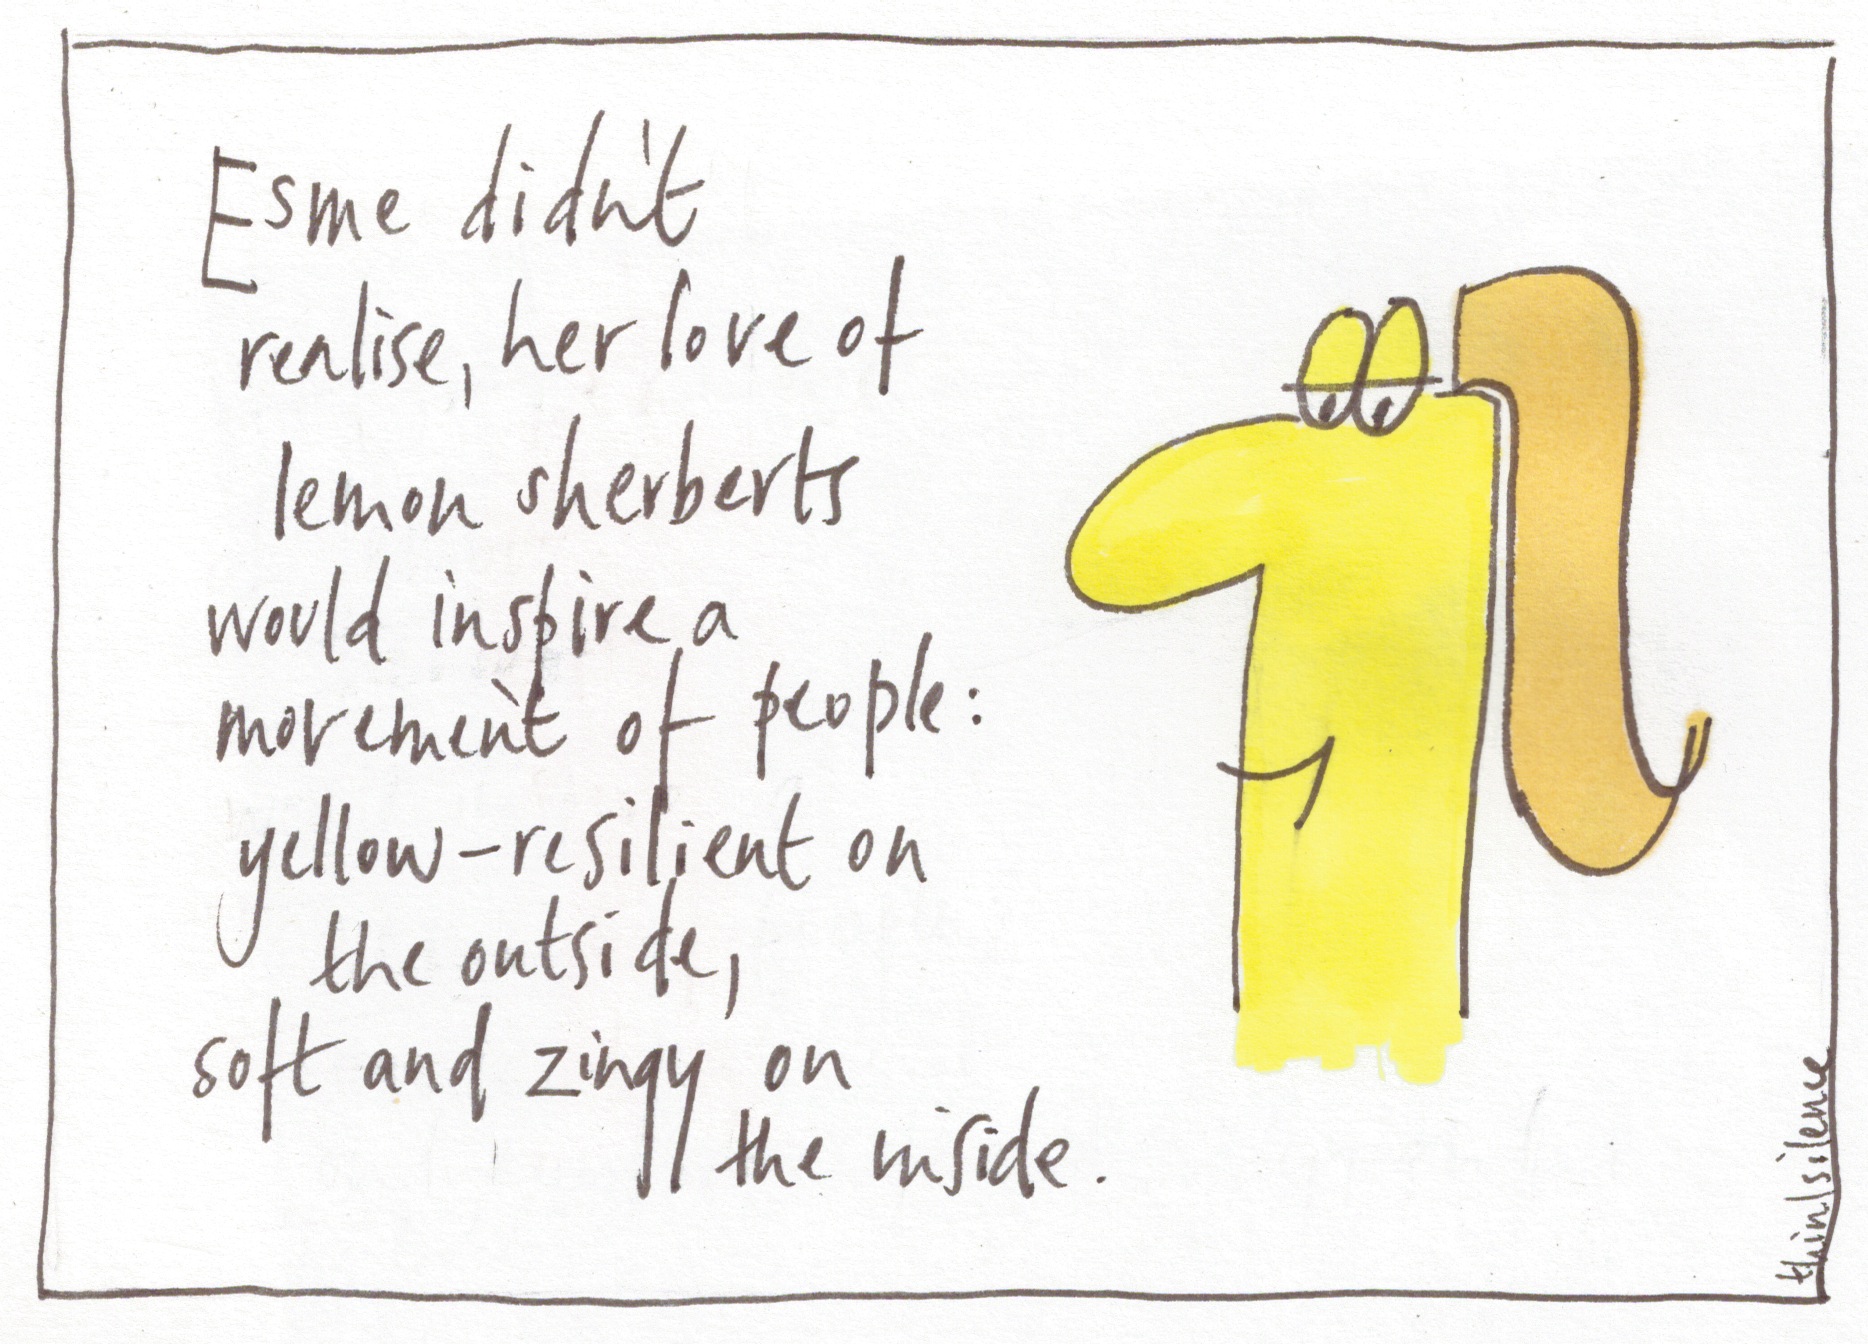 Esme didn't
realise, her love of
lemon sherberts
would inspire a
movement of people:
yellow-resilient on
the outside,
soft and zingy on
the inside.
thin|silence